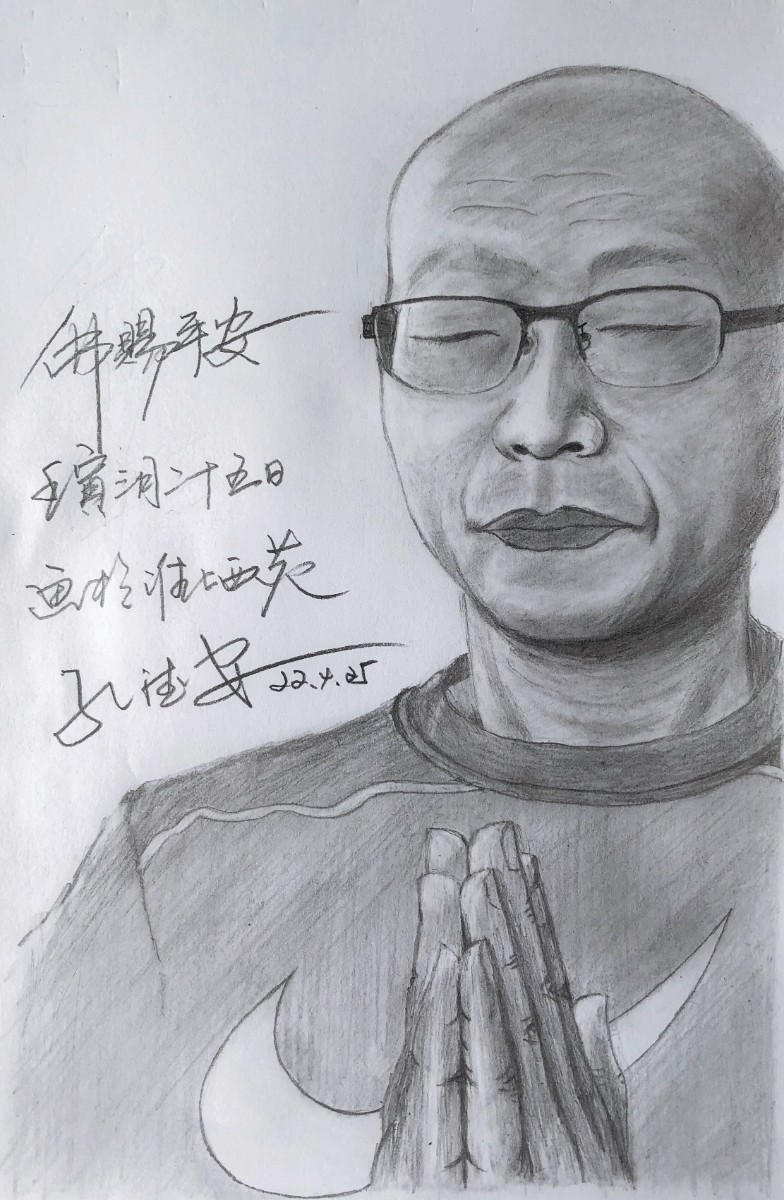 佛赐平安
壬寅三月二十五日
画於淮上西苑
孔德安 22.4.25